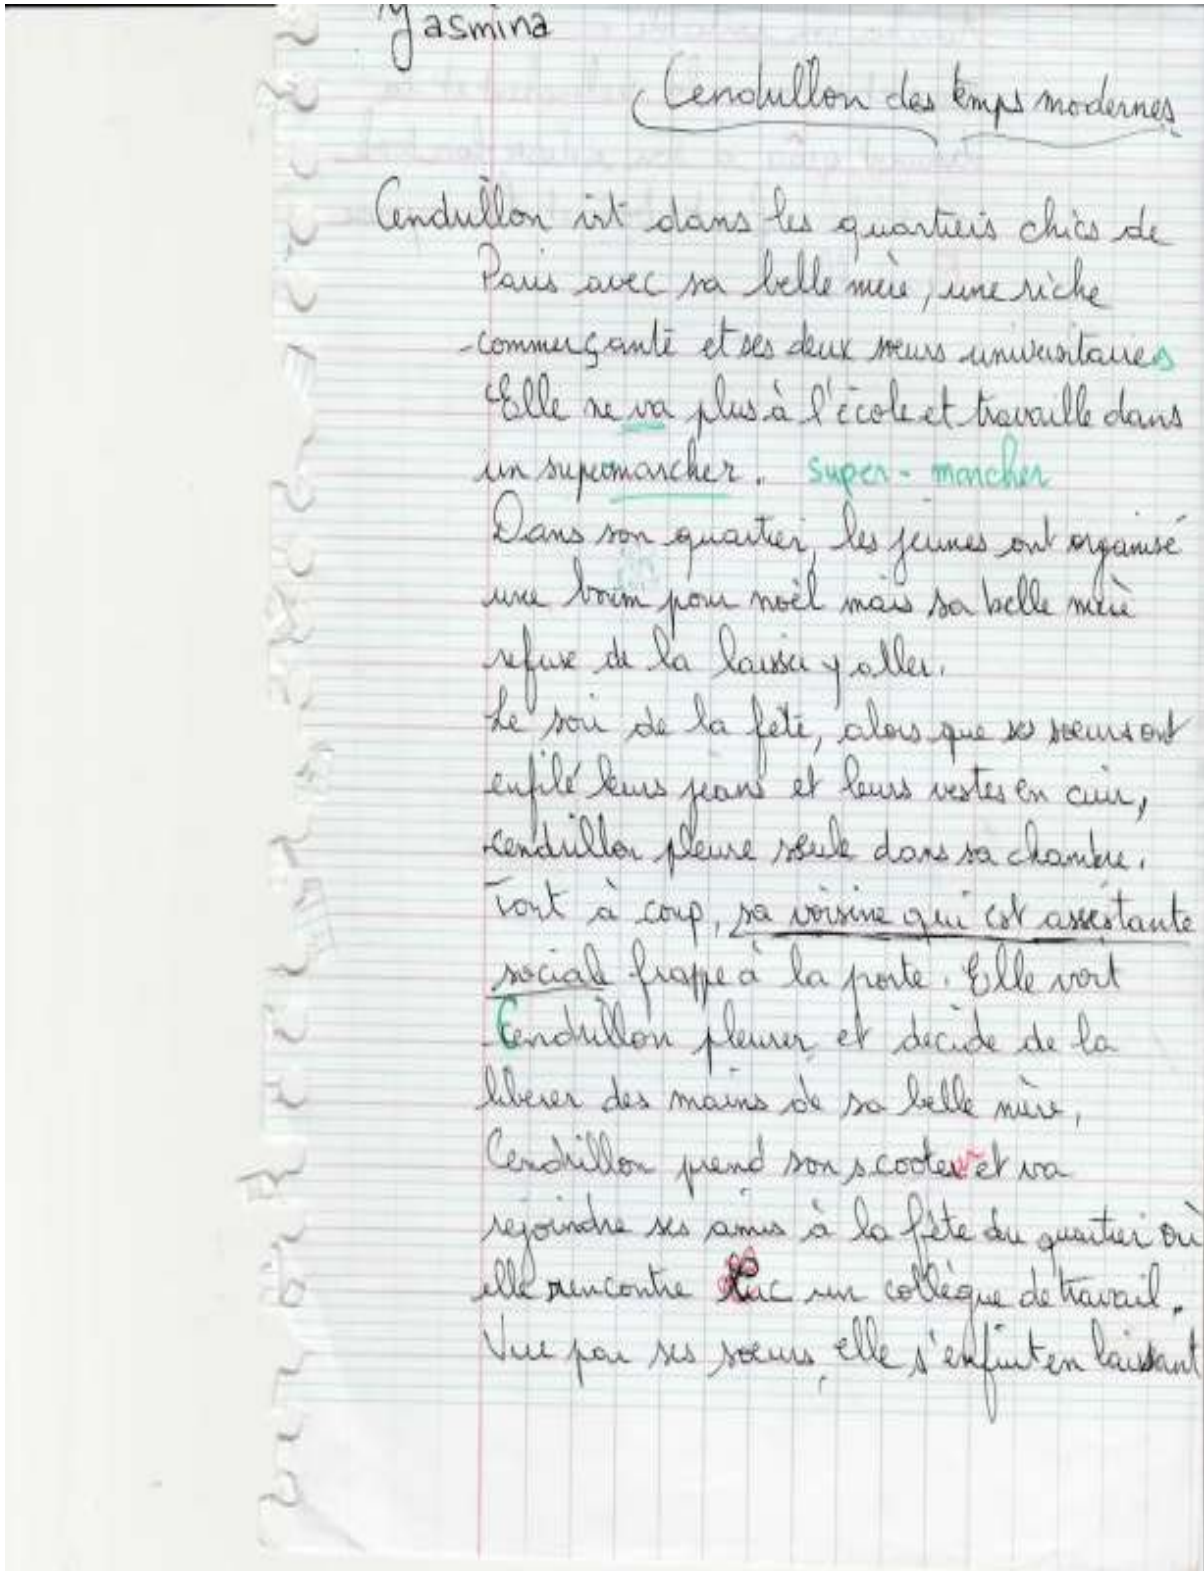 Yasmina
Cendrillon des temps modernes
Cendrillon vit dans les quartiers chics de
Paris avec sa belle mère, une riche
commerçante et ses deux sœurs universitaires
Elle ne va plus à l'école et travaille dans
un supermarcher. super-marcher
Dans son quartier, les jeunes ont organisé
une boum pour noël mais sa belle mère
refuse de la laisser y aller.
Le soir de la fête, alors que ses sœurs ont
enfilé leurs jeans et leurs vestes en cuir,
cendrillon pleure seule dans sa chambre.
Tout à coup, sa voisine qui est assistante
sociale frappe à la porte. Elle voit
Cendrillon pleurer et décide de la
libérer des mains de sa belle mère,
Cendrillon prend son scooter et va
rejoindre ses amis à la fête du quartier où
elle rencontre Luc un collègue de travail.
Vue par ses sœurs, elle s'enfuit en laissant